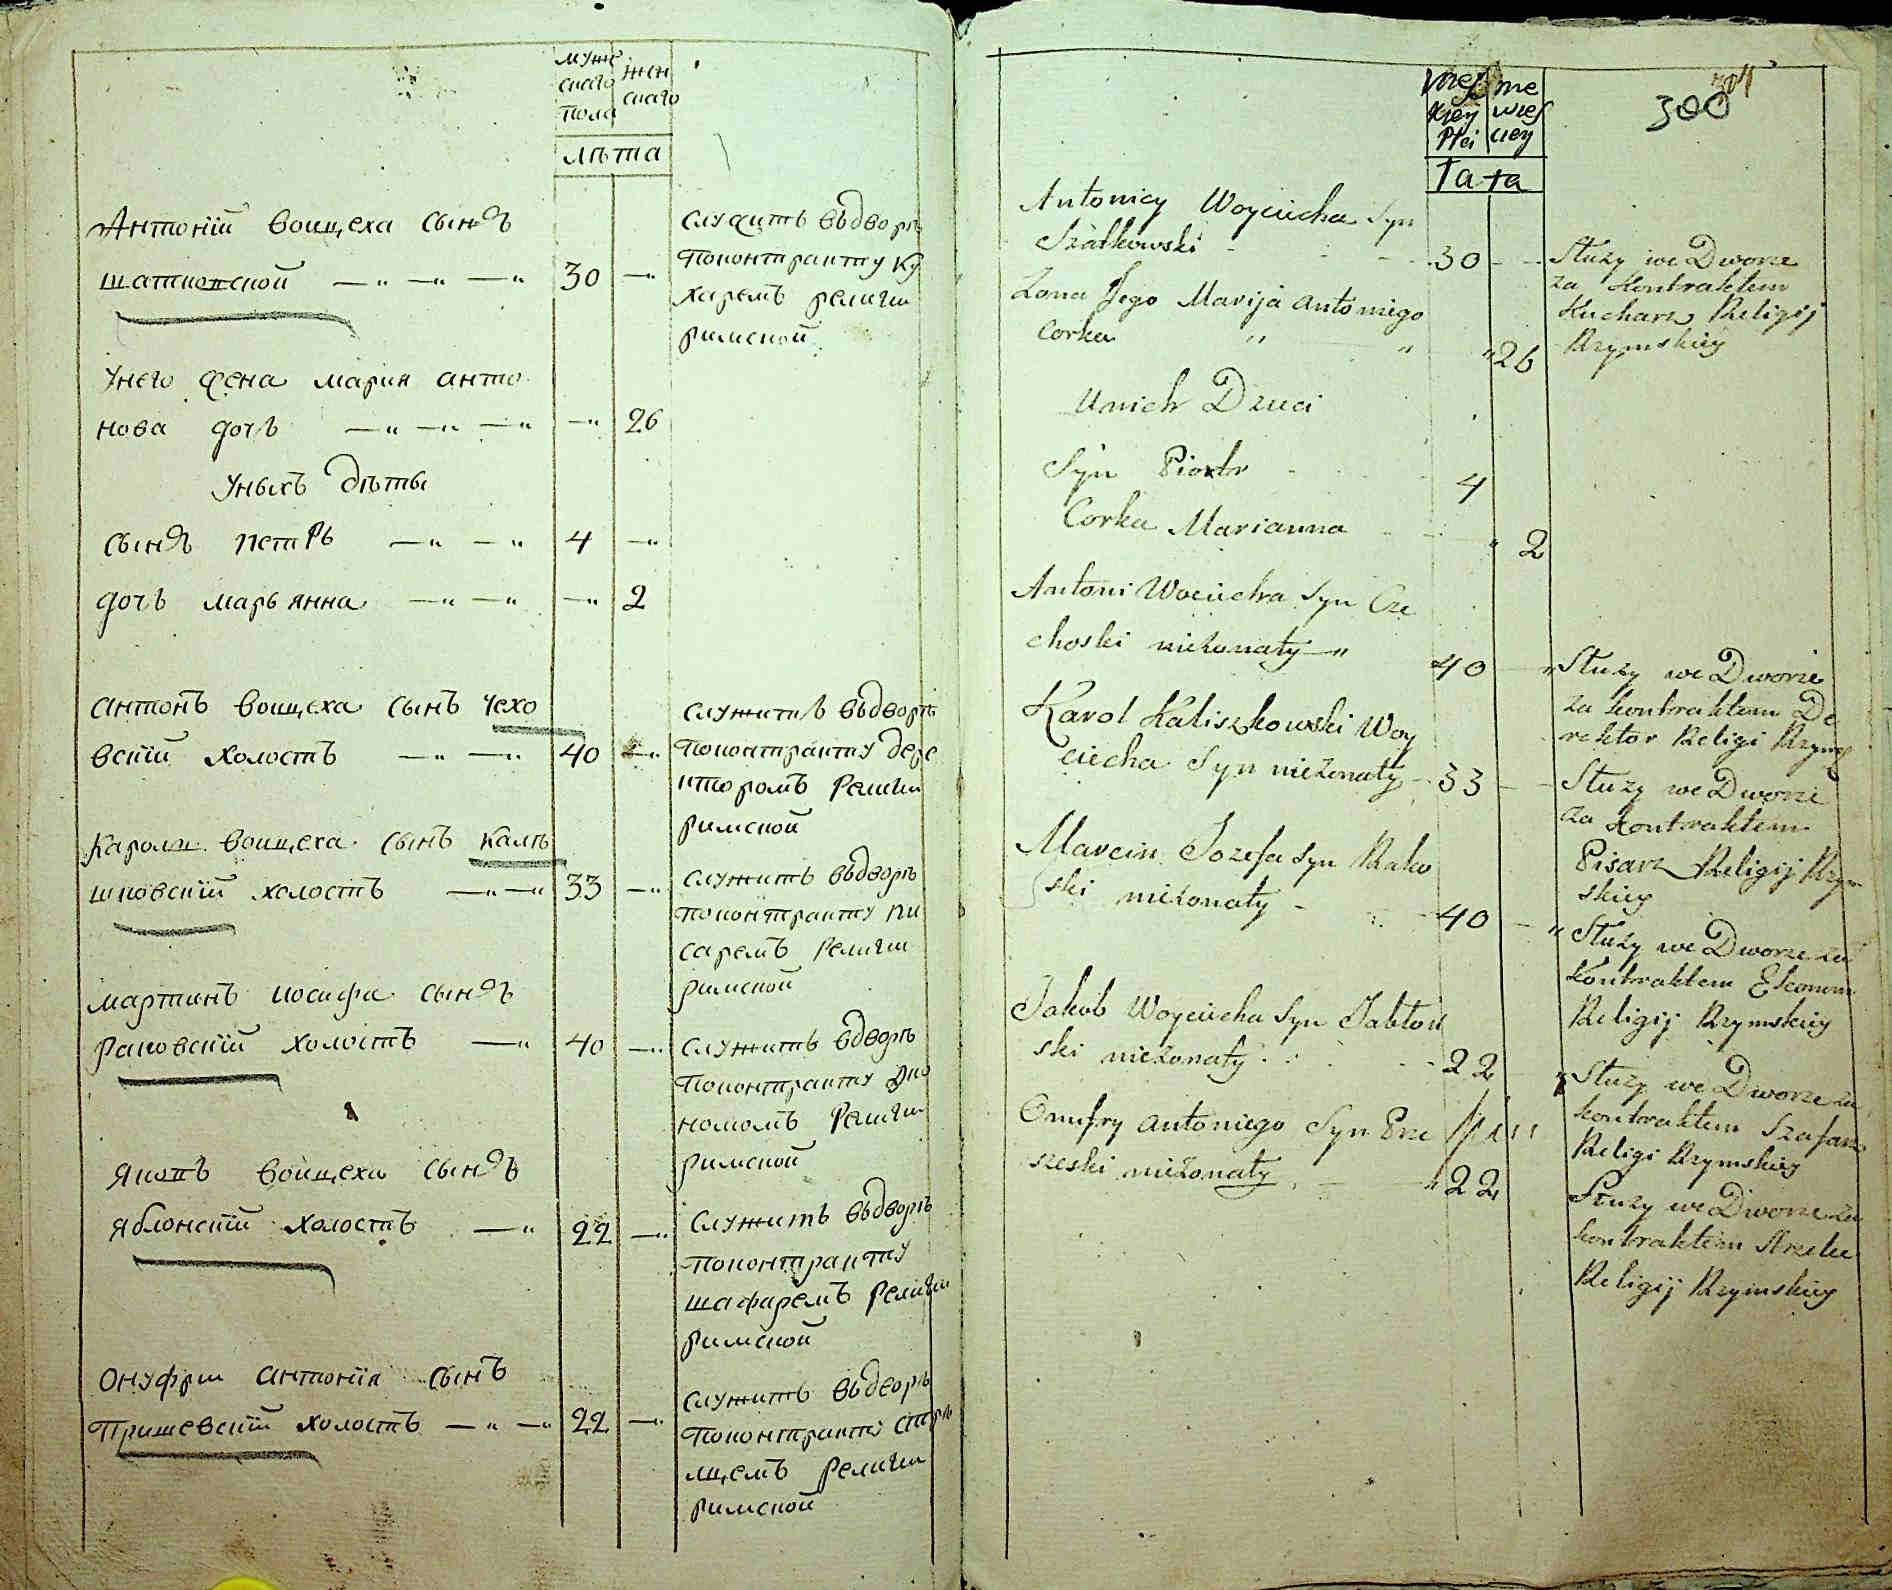 муже
скаго
пола
жен
скаго
лѣта
Антоній воицеха сынъ
шатковской — " — " — "
30 — "
служитъ вьдворѣ
поконтракту ку
харемъ религии
римской
унего жена мария анто
нова дочь — " — " — "
— " 26
уныхъ дѣты
сынъ петръ — " — "
4 — "
дочь марьянна — " — "
— " 2
антонъ воицеха сынъ чехо
вскій холостъ — " — "
40 — "
служитъ вьдворѣ
поконтракту дере
кторомъ религии
римской
кароль воицеха сынъ калѣ
шковскій холостъ — " — "
33 — "
служитъ вьдворѣ
поконтракту пи
саремъ религии
римской
мартинъ иосифа сынъ
раковскій холостъ — "
40 — "
служитъ вдворѣ
поконтракту эко
номомъ религии
римской
якопъ воицеха сынъ
яблонскій холостъ — "
22 — "
служитъ вьдворѣ
поконтракту
шафаремъ религии
римской
онуфри антонія сынъ
пришевскій холостъ — " — "
22 — "
служитъ вьдворѣ
поконтракту стрѣ
лцемъ религии
римской
męs
kiey
płci
nie
wies
ciey
Lata
300
Antoniey Woyciecha Syn
Szatkowski
30
Służy we Dworze
za Kontraktem
Kucharz Religij
Rzymskiey
Zona Jego Maryja Antoniego
Corka " "
" 26
U nich Dzieci
Syn Piotr
4
Corka Marianna
" 2
Antoni Wociecha Syn Cze
choski nieżonaty — "
40
Służy we Dworze
za kontraktem De
rektor Religi Rzyms
Karol Kaliszkowski Woy
ciecha Syn nieżonaty
33
Służy we Dworze
za Kontraktem
Pisarz Religij Rzym
skiey
Marcin Jozefa Syn Rako
ski nieżonaty
40
" Służy we Dworze za
Kontraktem Ekonom
Religij Rzymskiey
Jakob Woyciecha Syn Jabłoń
ski nieżonaty
22
" Służy we Dworze za
kontraktem Szafarz
Religi Rzymskiey
Onufry Antoniego Syn Prze
szeski nieżonaty
" 22
Służy we Dworze za
kontraktem Strzelec
Religij Rzymskiey